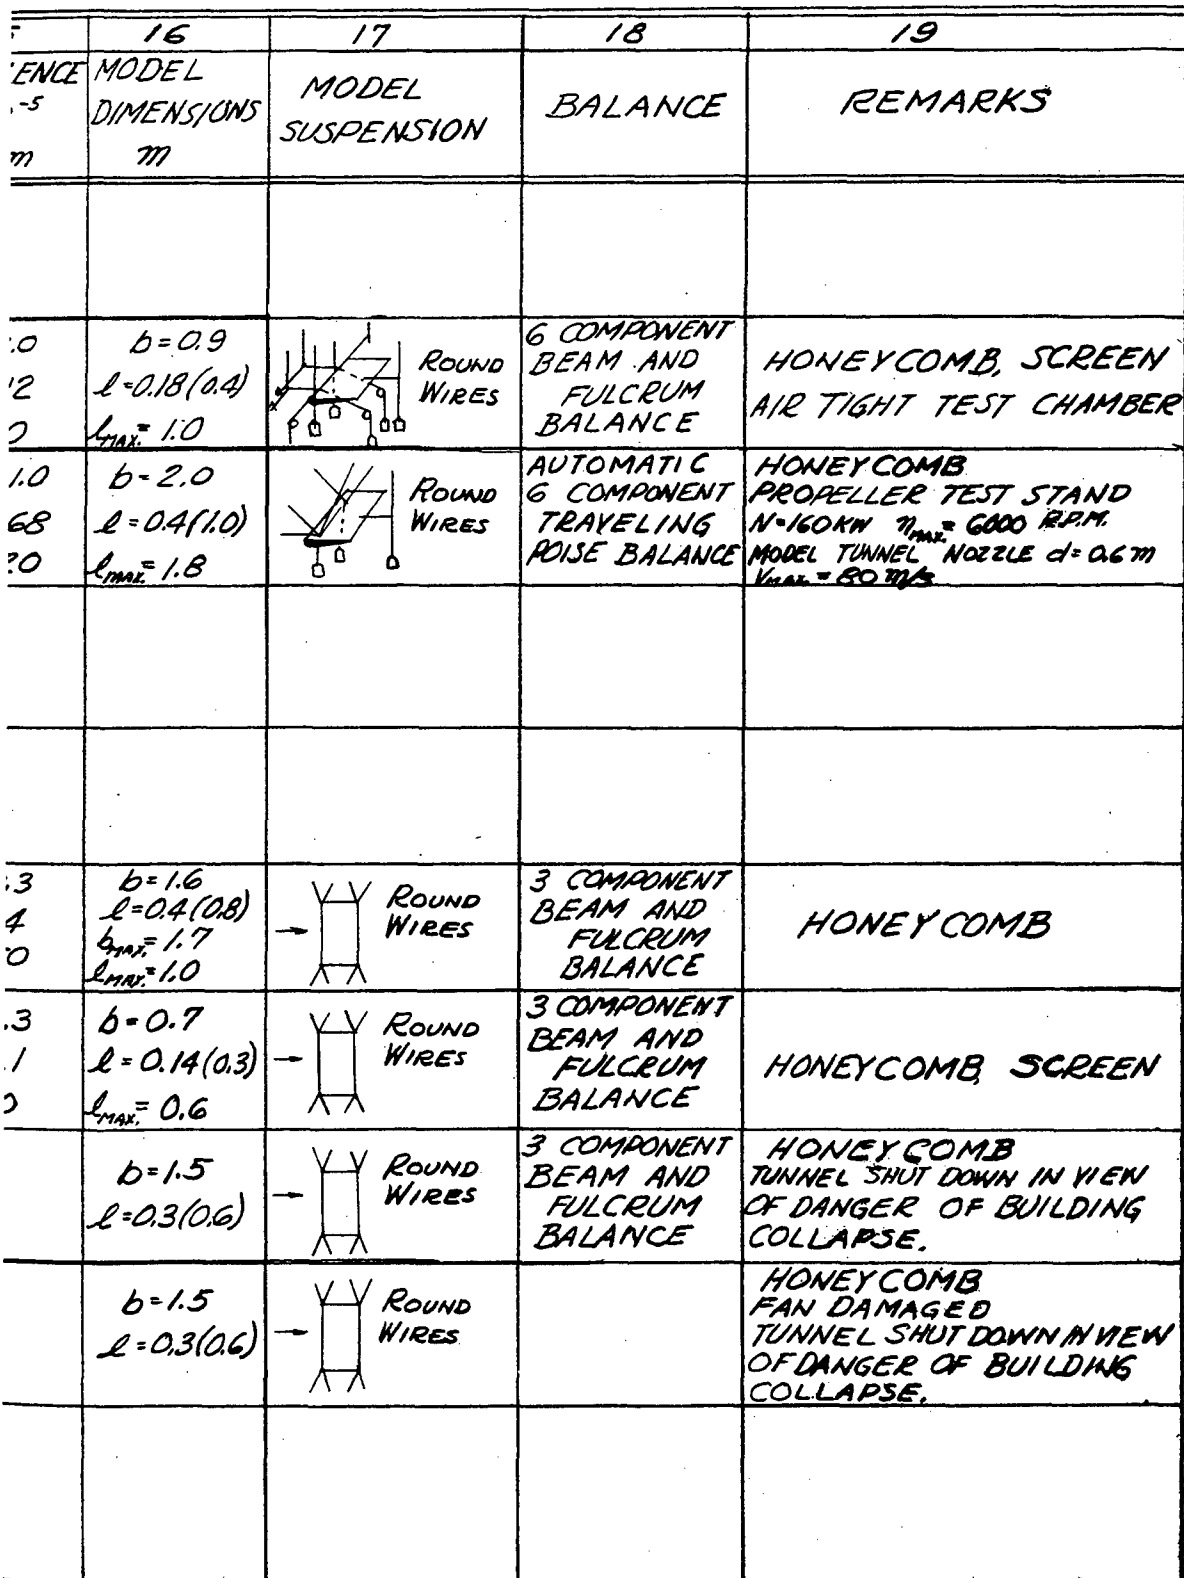 16 17 18 19
ENCE
-5
m
MODEL
DIMENSIONS
m
MODEL
SUSPENSION
BALANCE
REMARKS
.0
2
b = 0.9
l = 0.18 (0.4)
lMAX. = 1.0
ROUND
WIRES
6 COMPONENT
BEAM AND
FULCRUM
BALANCE
HONEYCOMB, SCREEN
AIR TIGHT TEST CHAMBER
1.0
68
20
b = 2.0
l = 0.4 (1.0)
lMAX. = 1.8
ROUND
WIRES
AUTOMATIC
6 COMPONENT
TRAVELING
POISE BALANCE
HONEYCOMB
PROPELLER TEST STAND
N = 160 KW nMAX. = 6000 R.P.M.
MODEL TUNNEL NOZZLE d = 0.6 m
VMAX. = 80 m/s
.3
4
0
b = 1.6
l = 0.4 (0.8)
bMAX. = 1.7
lMAX. = 1.0
ROUND
WIRES
3 COMPONENT
BEAM AND
FULCRUM
BALANCE
HONEYCOMB
.3
1
b = 0.7
l = 0.14 (0.3)
lMAX. = 0.6
ROUND
WIRES
3 COMPONENT
BEAM AND
FULCRUM
BALANCE
HONEYCOMB, SCREEN
b = 1.5
l = 0.3 (0.6)
ROUND
WIRES
3 COMPONENT
BEAM AND
FULCRUM
BALANCE
HONEYCOMB
TUNNEL SHUT DOWN IN VIEW
OF DANGER OF BUILDING
COLLAPSE.
b = 1.5
l = 0.3 (0.6)
ROUND
WIRES
HONEYCOMB
FAN DAMAGED
TUNNEL SHUT DOWN IN VIEW
OF DANGER OF BUILDING
COLLAPSE.